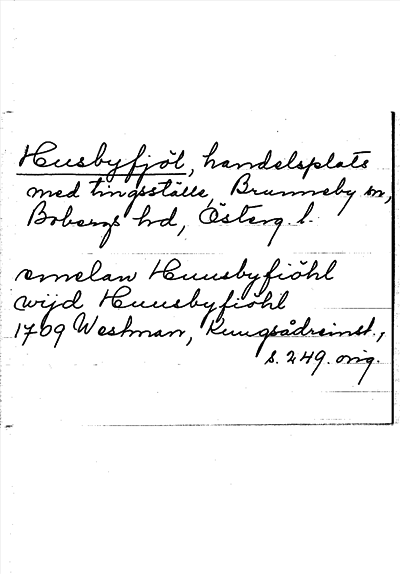 Husbyfjöl, handelsplats
med tingsställe, Brunneby sn,
Bobergs hd, Österg. l.
emelan Huusbyfiöhl
wijd Huusbyfiöhl
1709 Westman, Kungsådreinst.,
s. 249. orig.